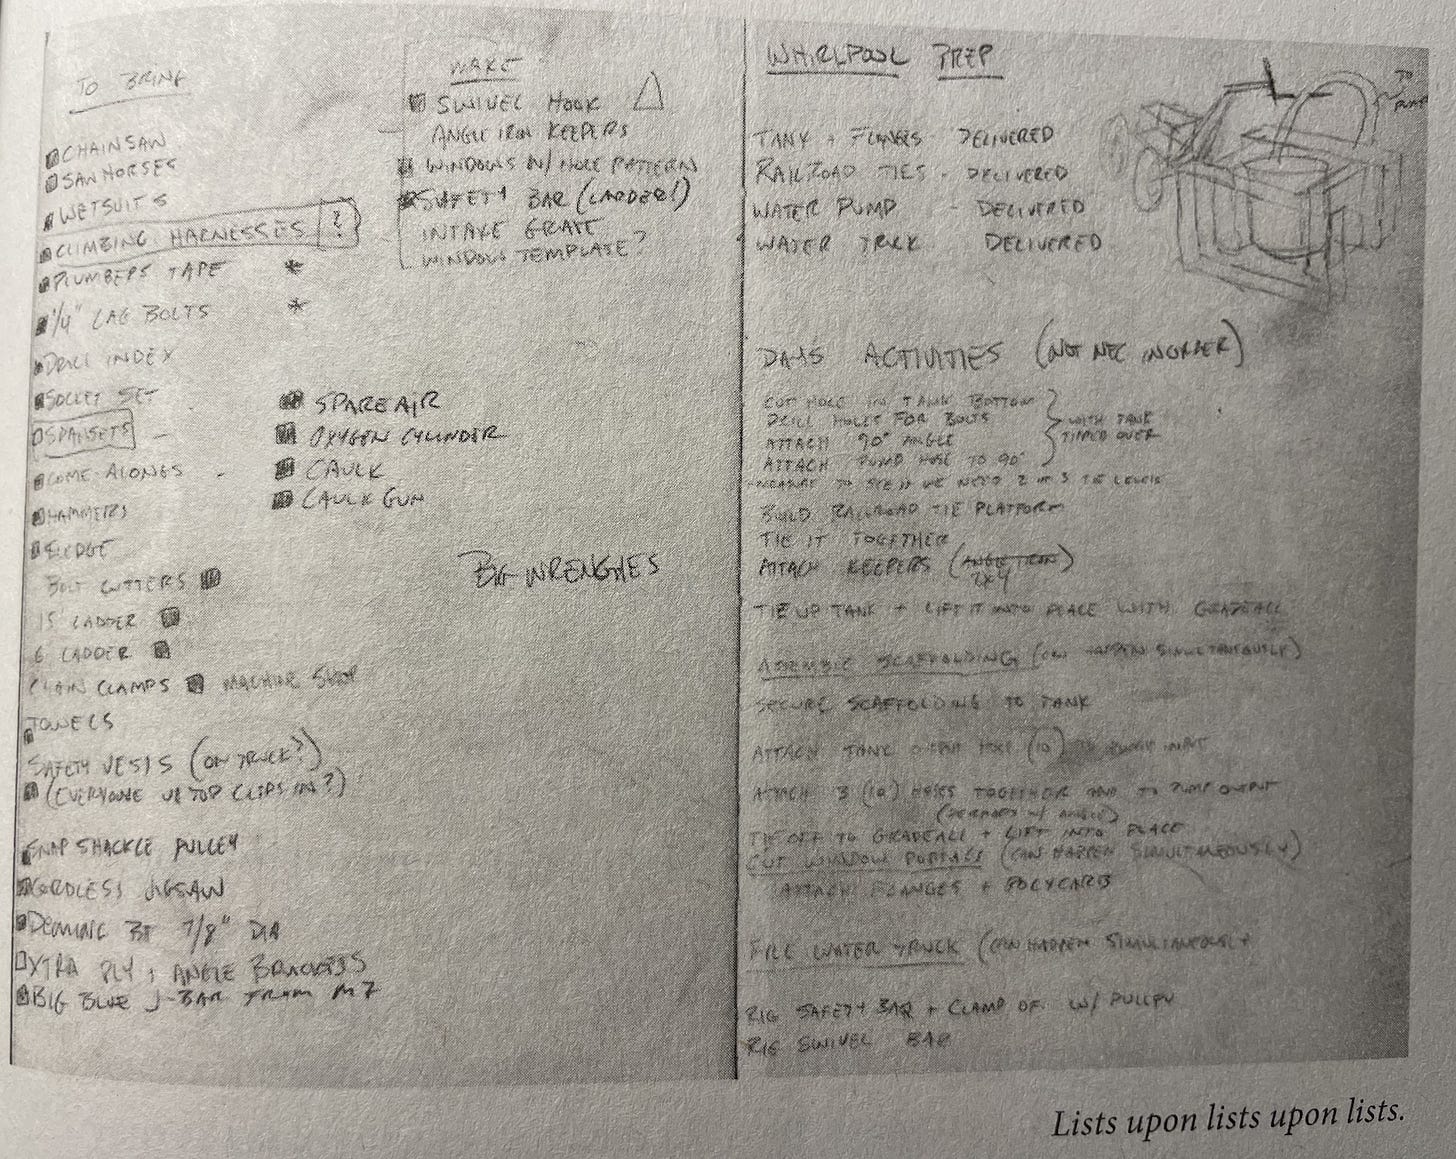 TO BRING
CHAINSAW
SAWHORSES
WETSUITS
CLIMBING HARNESSES ?
PLUMBERS TAPE *
1/4" LAG BOLTS *
DRILL INDEX
SOCKET SET
SPANSETS
COME ALONGS
HAMMERS
SLEDGE
BOLT CUTTERS
15' LADDER
6 LADDER
CHAIN CLAMPS MACHINE SHOP
TOWELS
SAFETY VESTS (ON TRUCK?)
(EVERYONE UP TOP CLIPS IN?)
SNAP SHACKLE PULLEY
CORDLESS JIGSAW
7/8" DIA
XTRA PLY + ANGLE BRACKETS
BIG BLUE J-BAR FROM M7
MAKE
SWIVEL HOOK
ANGLE IRON KEEPERS
WINDOWS W/ HOLE PATTERN
SAFETY BAR (LADDER!)
INTAKE GRATE
WINDOW TEMPLATE?
SPARE AIR
OXYGEN CYLINDER
CAULK
CAULK GUN
BIG WRENCHES
WHIRLPOOL PREP
TO PUMP
TANK + FLANGES - DELIVERED
RAILROAD TIES - DELIVERED
WATER PUMP - DELIVERED
WATER TRUCK DELIVERED
DAYS ACTIVITIES (NOT NEC IN ORDER)
CUT HOLE IN TANK BOTTOM
DRILL HOLES FOR BOLTS
ATTACH 90° ANGLE
ATTACH PUMP HOSE TO 90°
WITH TANK
TIPPED OVER
MEASURE TO SEE IF WE NEED 2 OR 3 TIE LEVELS
BUILD RAILROAD TIE PLATFORM
TIE IT TOGETHER
ATTACH KEEPERS (ANGLE IRON)
2X4
TIE UP TANK + LIFT IT INTO PLACE WITH GRADEALL
ASSEMBLE SCAFFOLDING (CAN HAPPEN SIMULTANEOUSLY)
SECURE SCAFFOLDING TO TANK
ATTACH TANK OUTPUT HOSE (10') TO PUMP INPUT
ATTACH 3 (10') HOSES TOGETHER AND TO PUMP OUTPUT
(PERHAPS W/ ANGLE)
TIE OFF TO GRADEALL + LIFT INTO PLACE
CUT WINDOW PORTALS (CAN HAPPEN SIMULTANEOUSLY)
ATTACH FLANGES + POLYCARB
FILL WATER TRUCK (CAN HAPPEN SIMULTANEOUSLY
RIG SAFETY BAR + CLAMP W/ PULLEY
RIG SWIVEL BAR
Lists upon lists upon lists.